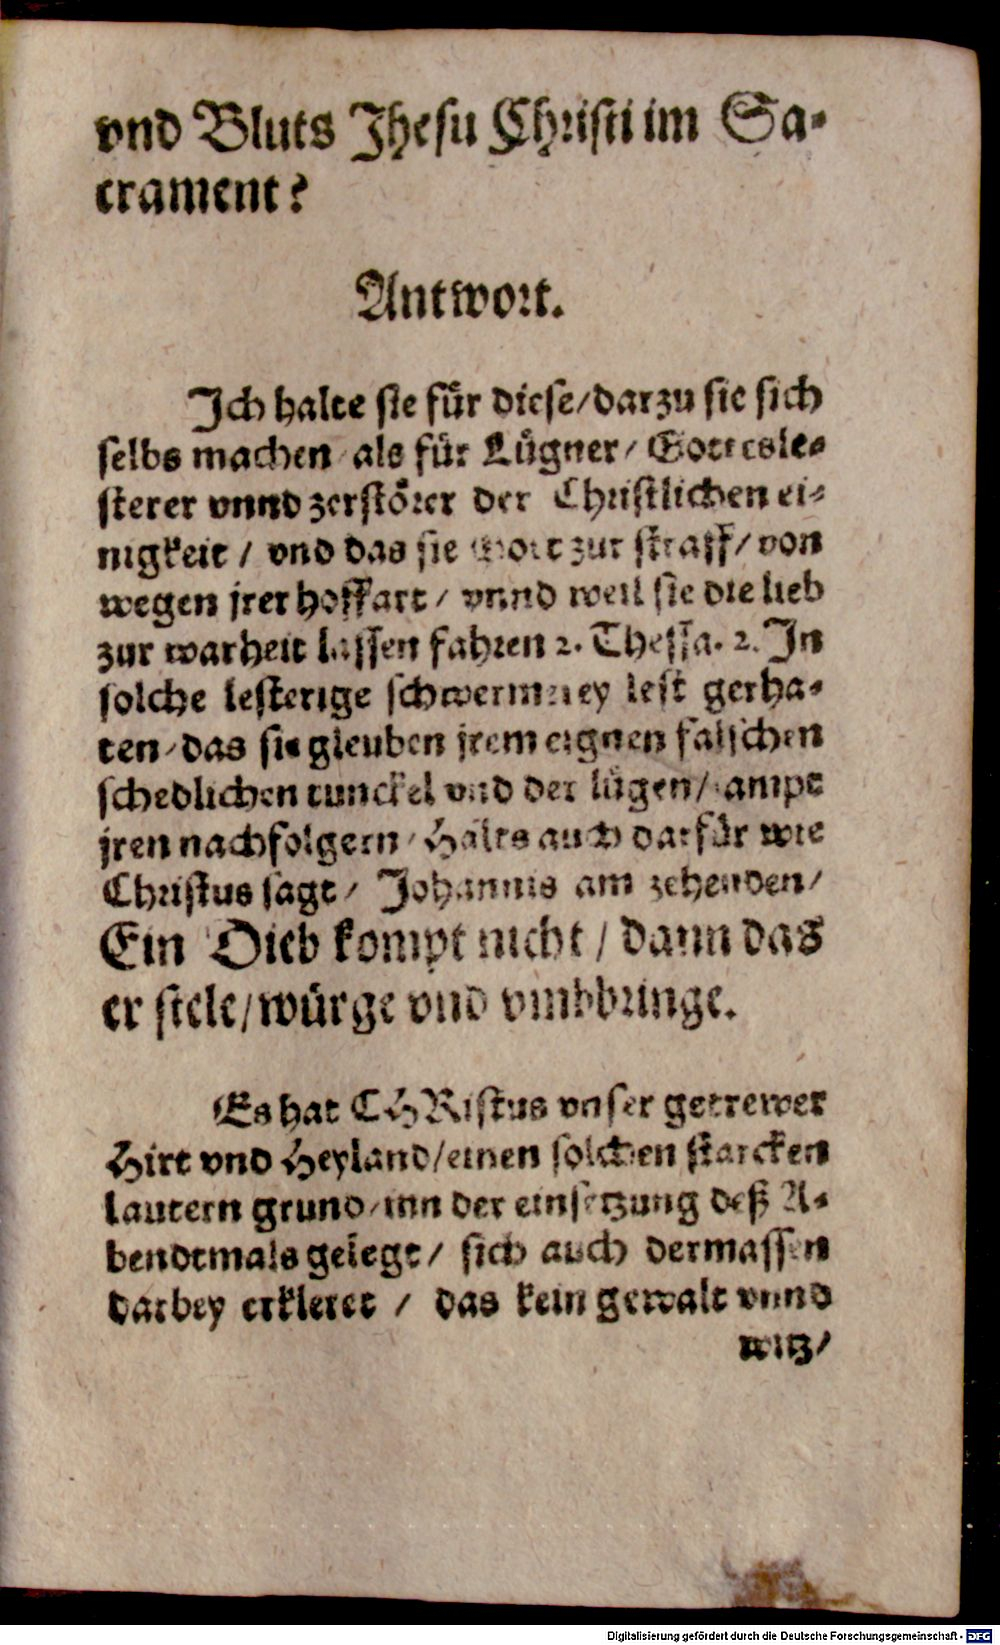 vnd Bluts Jhesu Christi im Sa-
crament?
Antwort.
Ich halte sie für diese/darzu sie sich
selbs machen/als für Lügner/Gottesle-
sterer vnnd zerstörer der Christlichen ei-
nigkeit/vnd das sie Gott zur straff/von
wegen jrer hoffart/vnnd weil sie die lieb
zur warheit lassen fahren 2. Thessa. 2. In
solche lesterige schwermerey lest gerha-
ten/das sie gleuben jrem eignen falschen
schedlichen tunckel vnd der lügen/sampt
jren nachfolgern/Halts auch darfür wie
Christus sagt/Johannis am zehenden/
Ein Dieb kompt nicht/dann das
er stele/würge vnd vmbbringe.
Es hat CHRistus vnser getrewer
Hirt vnd Heyland/einen solchen starcken
lautern grund/inn der einsetzung deß A-
bendtmals gelegt/sich auch dermassen
darbey erkleret/das kein gewalt vnnd
witz/
Digitalisierung gefördert durch die Deutsche Forschungsgemeinschaft - DFG